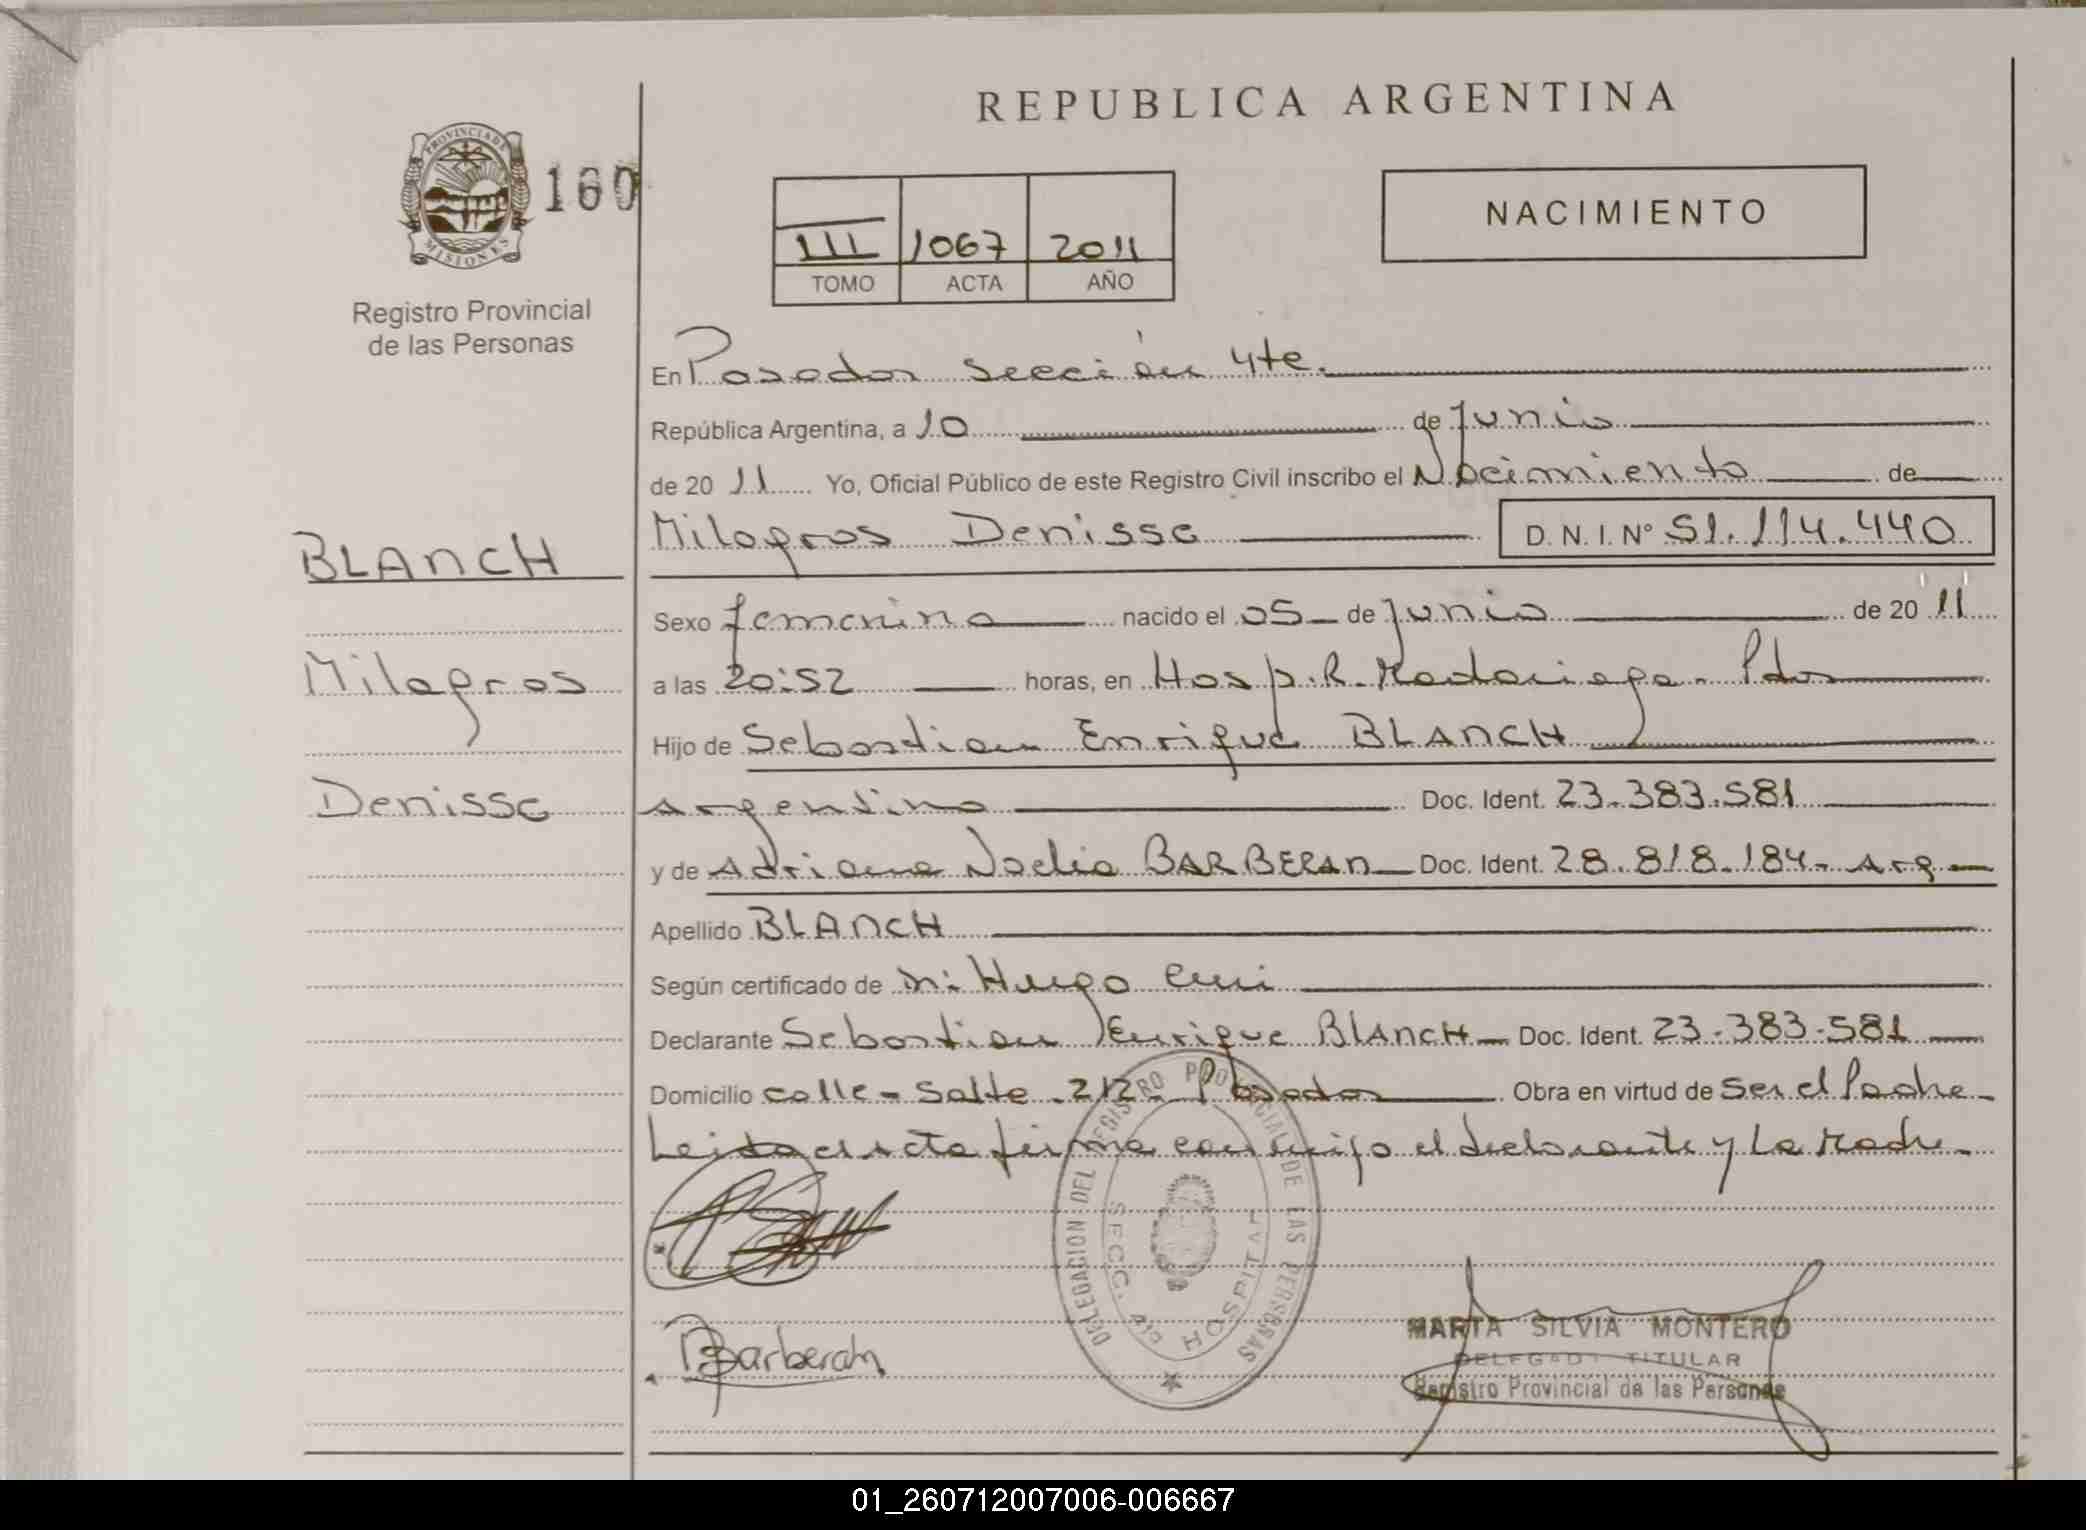 REPUBLICA ARGENTINA
PROVINCIA DE MISIONES
160
NACIMIENTO
III 1067 2011
TOMO ACTA AÑO
Registro Provincial
de las Personas
En Posadas sección 4te.
República Argentina, a 10 de Junio
de 20 11 Yo, Oficial Público de este Registro Civil inscribo el Nacimiento de
Milagros Denisse D. N. I. Nº 51.114.440
BLANCH
Milagros
Denisse
Sexo femenino nacido el 05 de Junio de 20 11
a las 20:52 horas, en Hosp. R. Madariaga - Pdas
Hijo de Sebastian Enrique BLANCH
Argentino Doc. Ident. 23.383.581
y de Adriana Noelia BARBERAN Doc. Ident. 28.818.184 - Arg
Apellido BLANCH
Según certificado de Hugo
Declarante Sebastian Enrique BLANCH Doc. Ident. 23-383-581
Domicilio calle - Salta 212 Posadas Obra en virtud de Ser el Padre
Leida el acta firma conmigo el declarante y La Madre
DELEGACION DEL REGISTRO PROVINCIAL DE LAS PERSONAS
SECC. 4ta HOSPITAL
Barberan
MARTA SILVIA MONTERO
DELEGADA TITULAR
Registro Provincial de las Personas
01_260712007006-006667